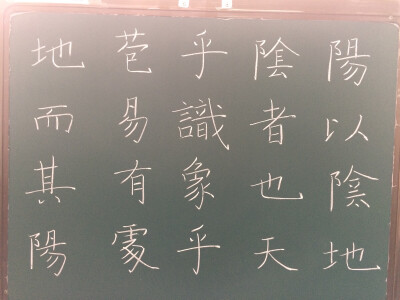 地苞乎陰陽
而易識者以
其有象也陰
陽處乎天地